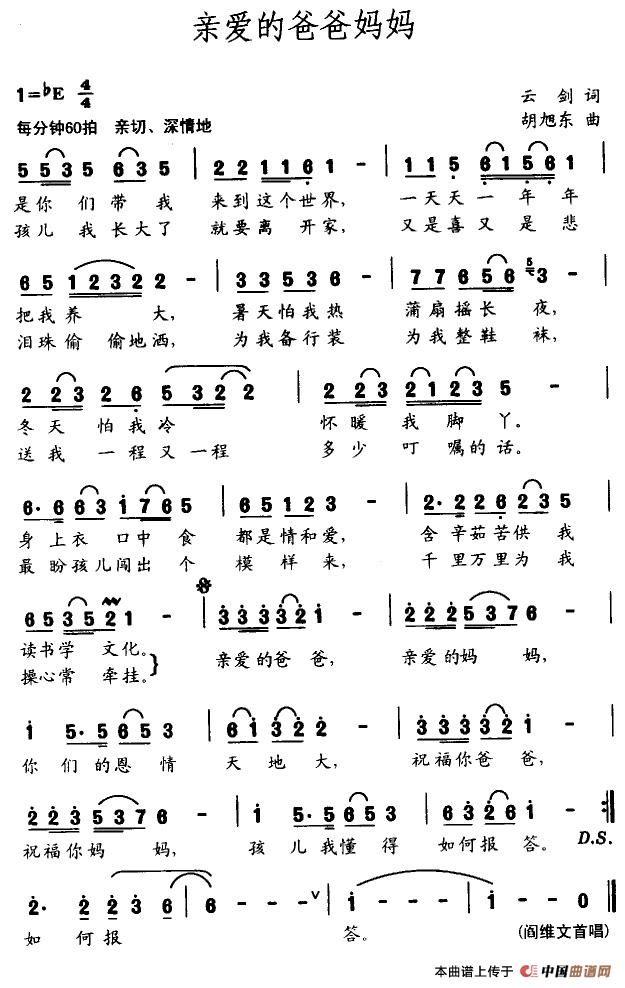 亲爱的爸爸妈妈
1=♭E 4/4
云剑 词
每分钟60拍 亲切、深情地
胡旭东 曲
5 5 3 5 6 3 5 | 2 2 1 1 6 1 - | 1 1 5 6 1 5 6 1 |
是你们带我 来到这个世界, 一天天一年年
孩儿我长大了 就要离开家, 又是喜又是悲
6 5 1 2 3 2 2 - | 3 3 5 3 6 - | 7 7 6 5 6 3 - |
把我养大, 暑天怕我热 蒲扇摇长夜,
泪珠偷偷地洒, 为我备行装 为我整鞋袜,
2 2 3 2 6 5 3 2 2 | 2 2 3 2 1 2 3 5 - |
冬天怕我冷 怀暖我脚丫。
送我一程又一程 多少叮嘱的话。
6· 6 6 3 1 7 6 5 | 6 5 1 2 3 - | 2· 2 2 6 2 3 5 |
身上衣口中食 都是情和爱, 含辛茹苦供我
最盼孩儿闯出个 模样来, 千里万里为我
6 5 3 5 2 1 - | 3 3 3 3 2 1 - | 2 2 2 5 3 7 6 - |
读书学文化。 亲爱的爸爸, 亲爱的妈妈,
操心常牵挂。
1 5· 5 6 5 3 | 6 1 3 2 2 - | 3 3 3 3 2 1 - |
你们的恩情 天地大, 祝福你爸爸,
2 2 2 5 3 7 6 - | 1 5· 5 6 5 3 | 6 3 2 6 1 - :|
祝福你妈妈, 孩儿我懂得 如何报答。 D.S.
2· 2 3 2 1 6 | 6 - - ∨ | 1 - - - | 1 - - 0 ‖
如何报答。 (阎维文首唱)
本曲谱上传于 中国曲谱网